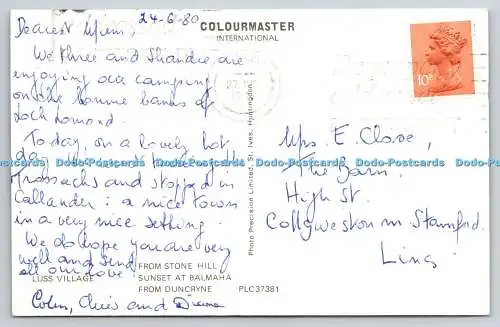 24-6-80
Dearest Mum,
We three and Shandie are
enjoying our camping
on the bonnie banks of
Loch Lomond.
Today, on a lovely hot
day,
Trossachs and stopped in
Callander: a nice town
in a very nice setting.
We do hope you are very
well and send
all our love.
Colin, Chris and
COLOURMASTER
INTERNATIONAL
10P
Mrs E. Close,
The Barn,
High St.
Collyweston nr. Stamford.
Lincs.
Photo Precision Limited, St. Ives, Huntingdon
LUSS VILLAGE
FROM STONE HILL
SUNSET AT BALMAHA
FROM DUNCRYNE
PLC37381
Dodo-Postcards Dodo-Postcards Dodo-Postcards Dodo-Postcards Dodo-Postcards